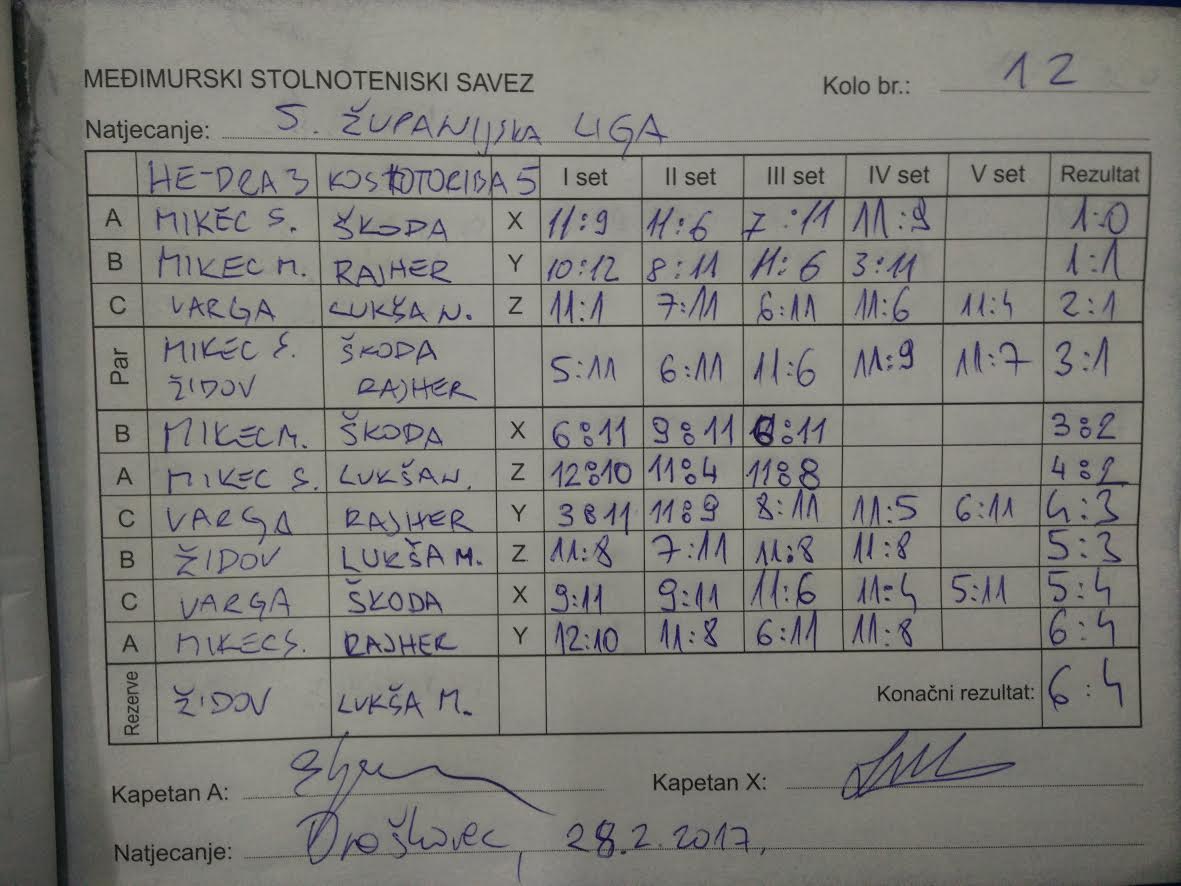 MEĐIMURSKI STOLNOTENISKI SAVEZ Kolo br.: 12
Natjecanje: 5. ŽUPANIJSKA LIGA
HE-DRA 3 KOSTOTORIBA 5 I set II set III set IV set V set Rezultat
A MIKEC S. ŠKODA X 11:9 11:6 7:11 11:9 1:0
B MIKEC M. RAJHER Y 10:12 8:11 11:6 3:11 1:1
C VARGA LUKŠA N. Z 11:1 7:11 6:11 11:6 11:4 2:1
Par MIKEC S. ŠKODA 5:11 6:11 11:6 11:9 11:7 3:1
ŽIDOV RAJHER
B MIKEC M. ŠKODA X 6:11 9:11 6:11 3:2
A MIKEC S. LUKŠA N. Z 12:10 11:4 11:8 4:2
C VARGA RAJHER Y 3:11 11:9 8:11 11:5 6:11 4:3
B ŽIDOV LUKŠA M. Z 11:8 7:11 11:8 11:8 5:3
C VARGA ŠKODA X 9:11 9:11 11:6 11:4 5:11 5:4
A MIKEC S. RAJHER Y 12:10 11:8 6:11 11:8 6:4
Rezerve ŽIDOV LUKŠA M. Konačni rezultat: 6:4
Kapetan A: Kapetan X:
Natjecanje: Draškovec, 28.2.2017.